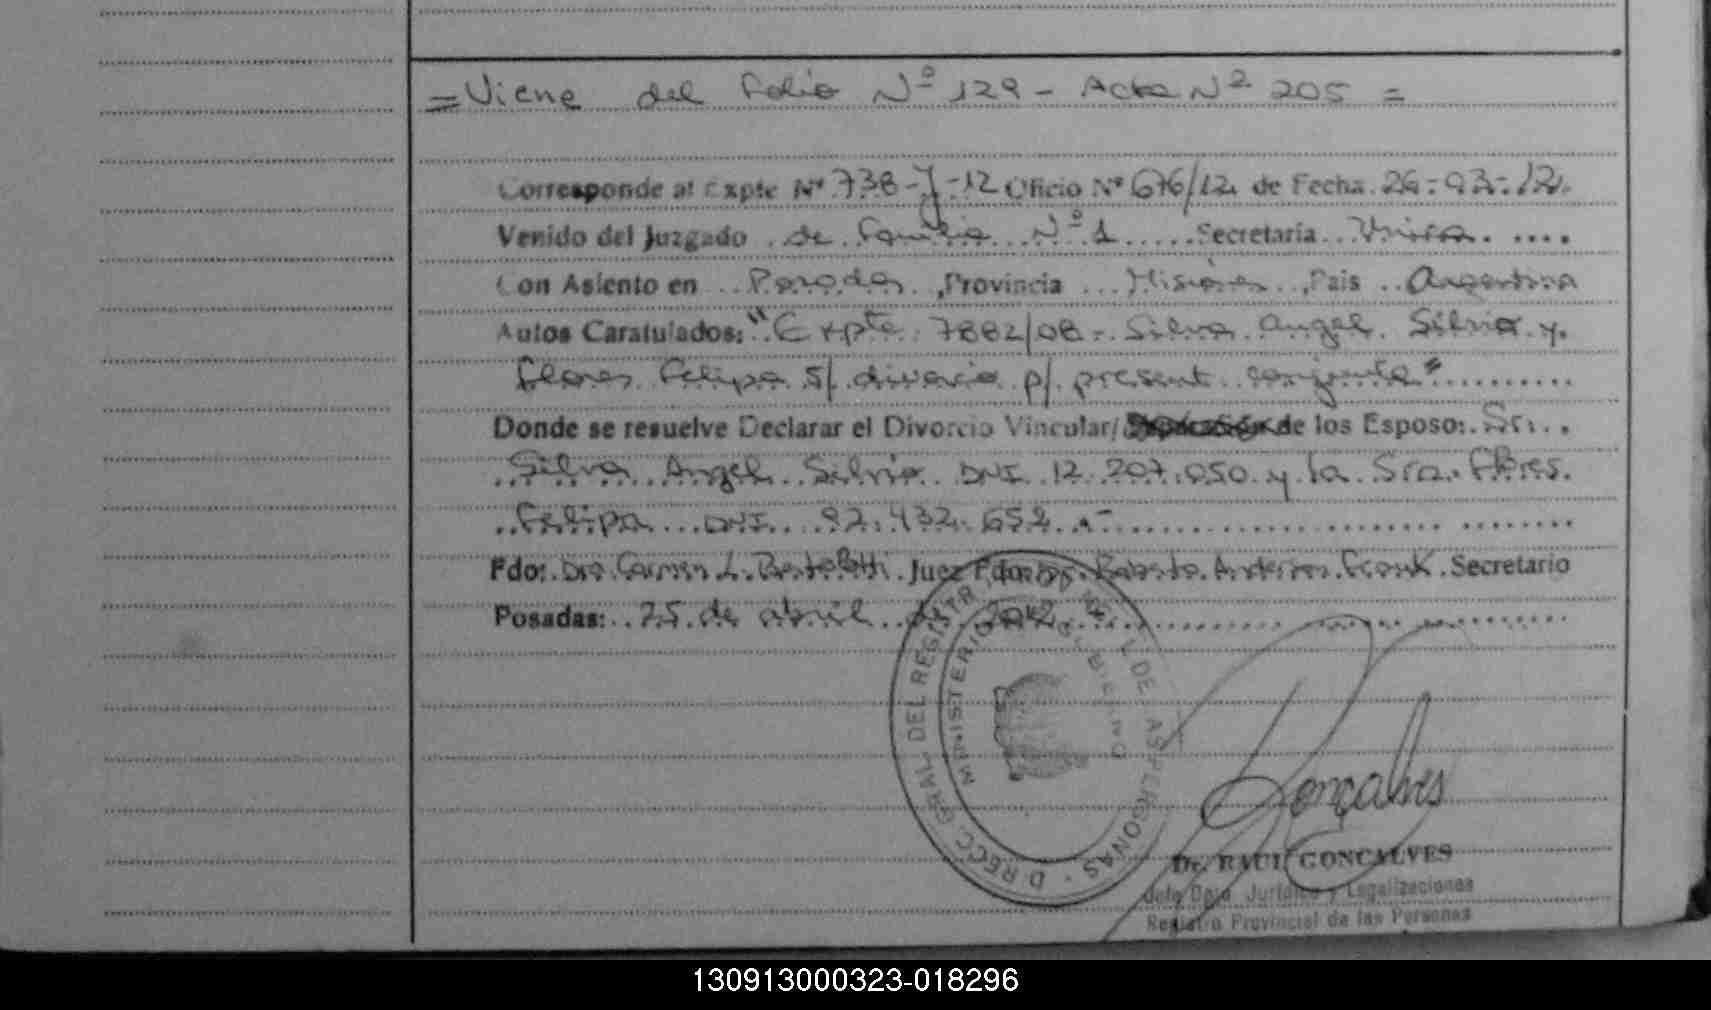 = Viene del folio Nº 129 - Acta Nº 205 =
Corresponde al Expte Nº 738-J-12 Oficio Nº 676/12 de Fecha 26-03-12.
Venido del Juzgado de familia Nº 1 Secretaria Unica
Con Asiento en Posadas, Provincia Misiones, Pais Argentina
Autos Caratulados: "Expte 7882/08 - Silva Angel Silvio y
flores Felipa S/ divorcio p/ present conjunta"
Donde se resuelve Declarar el Divorcio Vincular/ de los Esposo: Sr.
Silva Angel Silvio DNI 12.207.050 y la Sra. flores
Felipa DNI 92.432.652 .-
Fdo: Dra Carmen L. Juez Fdo: Dr. Roberto Anderson Frank Secretario
Posadas: 25 de abril de 2012
DIRECC. GRAL DEL REGISTR DE LAS PERSONAS
MINISTERIO GOBIERNO
Gonçalves
Dr. RAUL GONCALVES
Jefe Dpto. Jurídico y Legalizaciones
Registro Provincial de las Personas
130913000323-018296